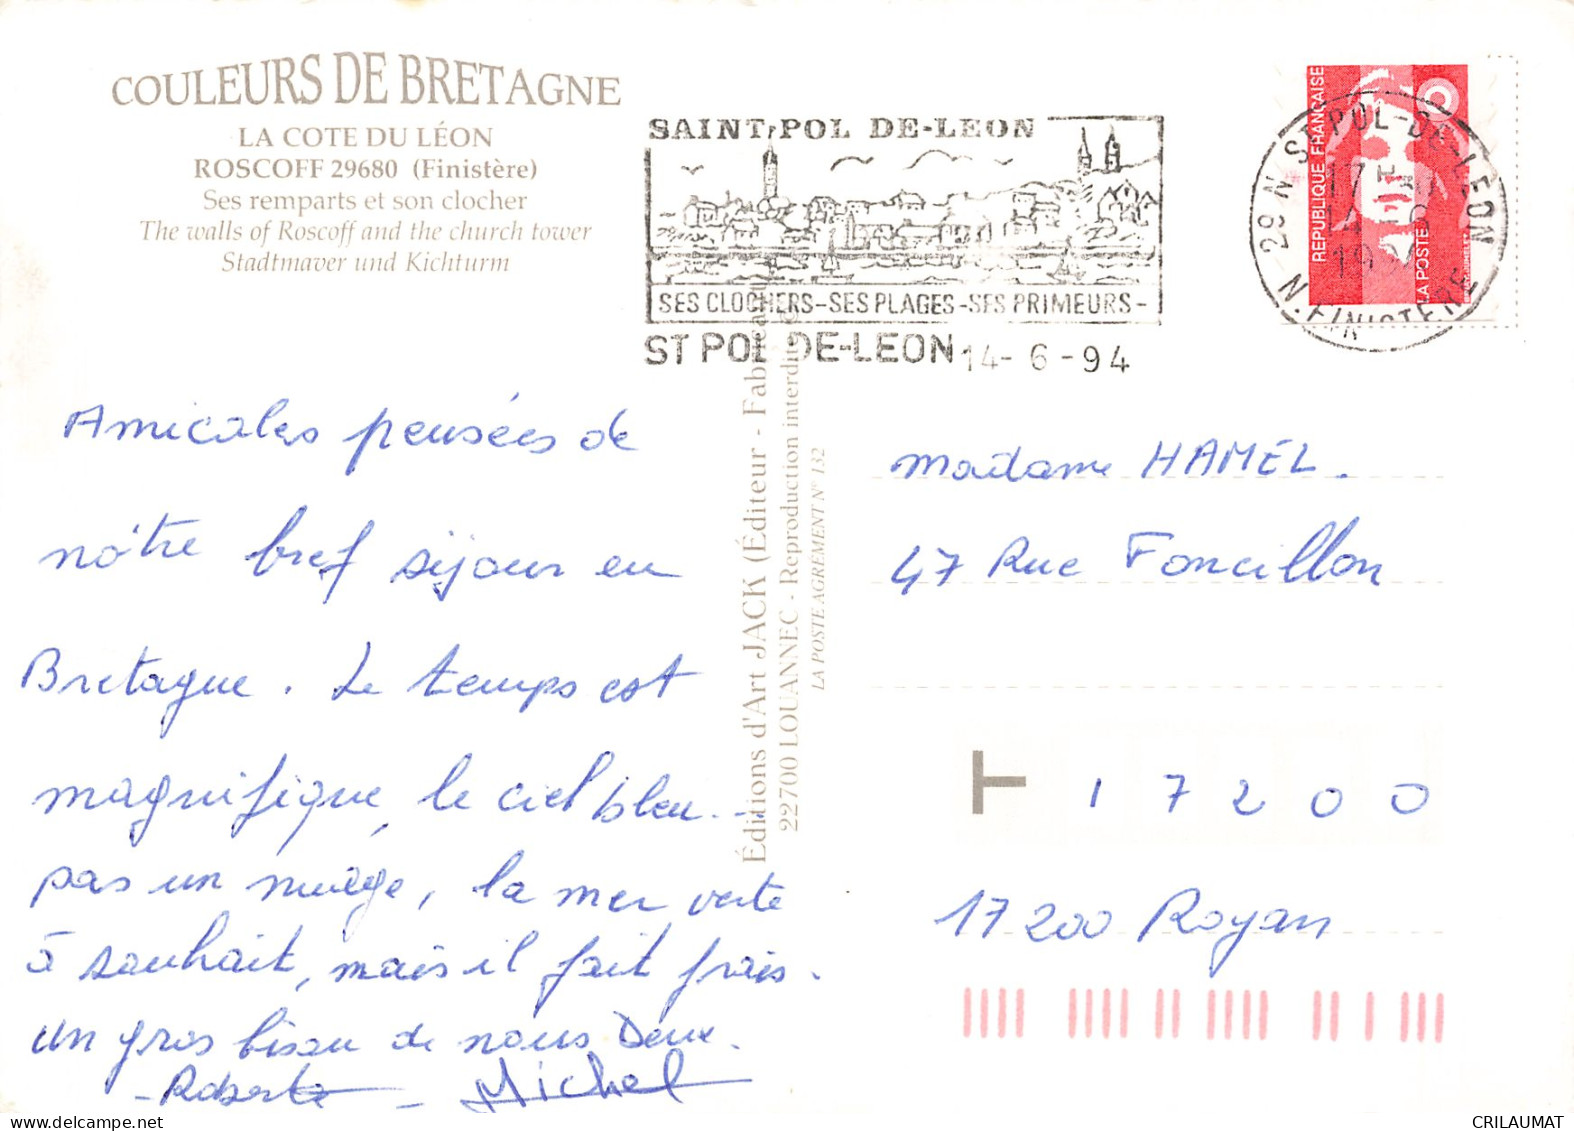 COULEURS DE BRETAGNE
LA COTE DU LÉON
ROSCOFF 29680 (Finistère)
Ses remparts et son clocher
The walls of Roscoff and the church tower
Stadtmaver und Kichturm
SAINT POL DE-LEON
SES CLOCHERS-SES PLAGES-SES PRIMEURS-
ST POL DE-LEON 14-6-94
29 N ST POL-DE-LEON
N.FINISTERE
REPUBLIQUE FRANÇAISE
LA POSTE
Amicales pensées de
nôtre bref séjour en
Bretagne. Le temps est
magnifique, le ciel bleu...
pas un nuage, la mer verte
à souhait, mais il fait frais.
Un gros bisou de nous Deux.
- Roberte - Michel
Éditions d'Art JACK (Éditeur - Fabricant)
22700 LOUANNEC - Reproduction interdite
LA POSTE AGRÉMENT N° 132
Madame HAMEL.
47 Rue Foncillon
T 17200
17200 Royan
CRILAUMAT